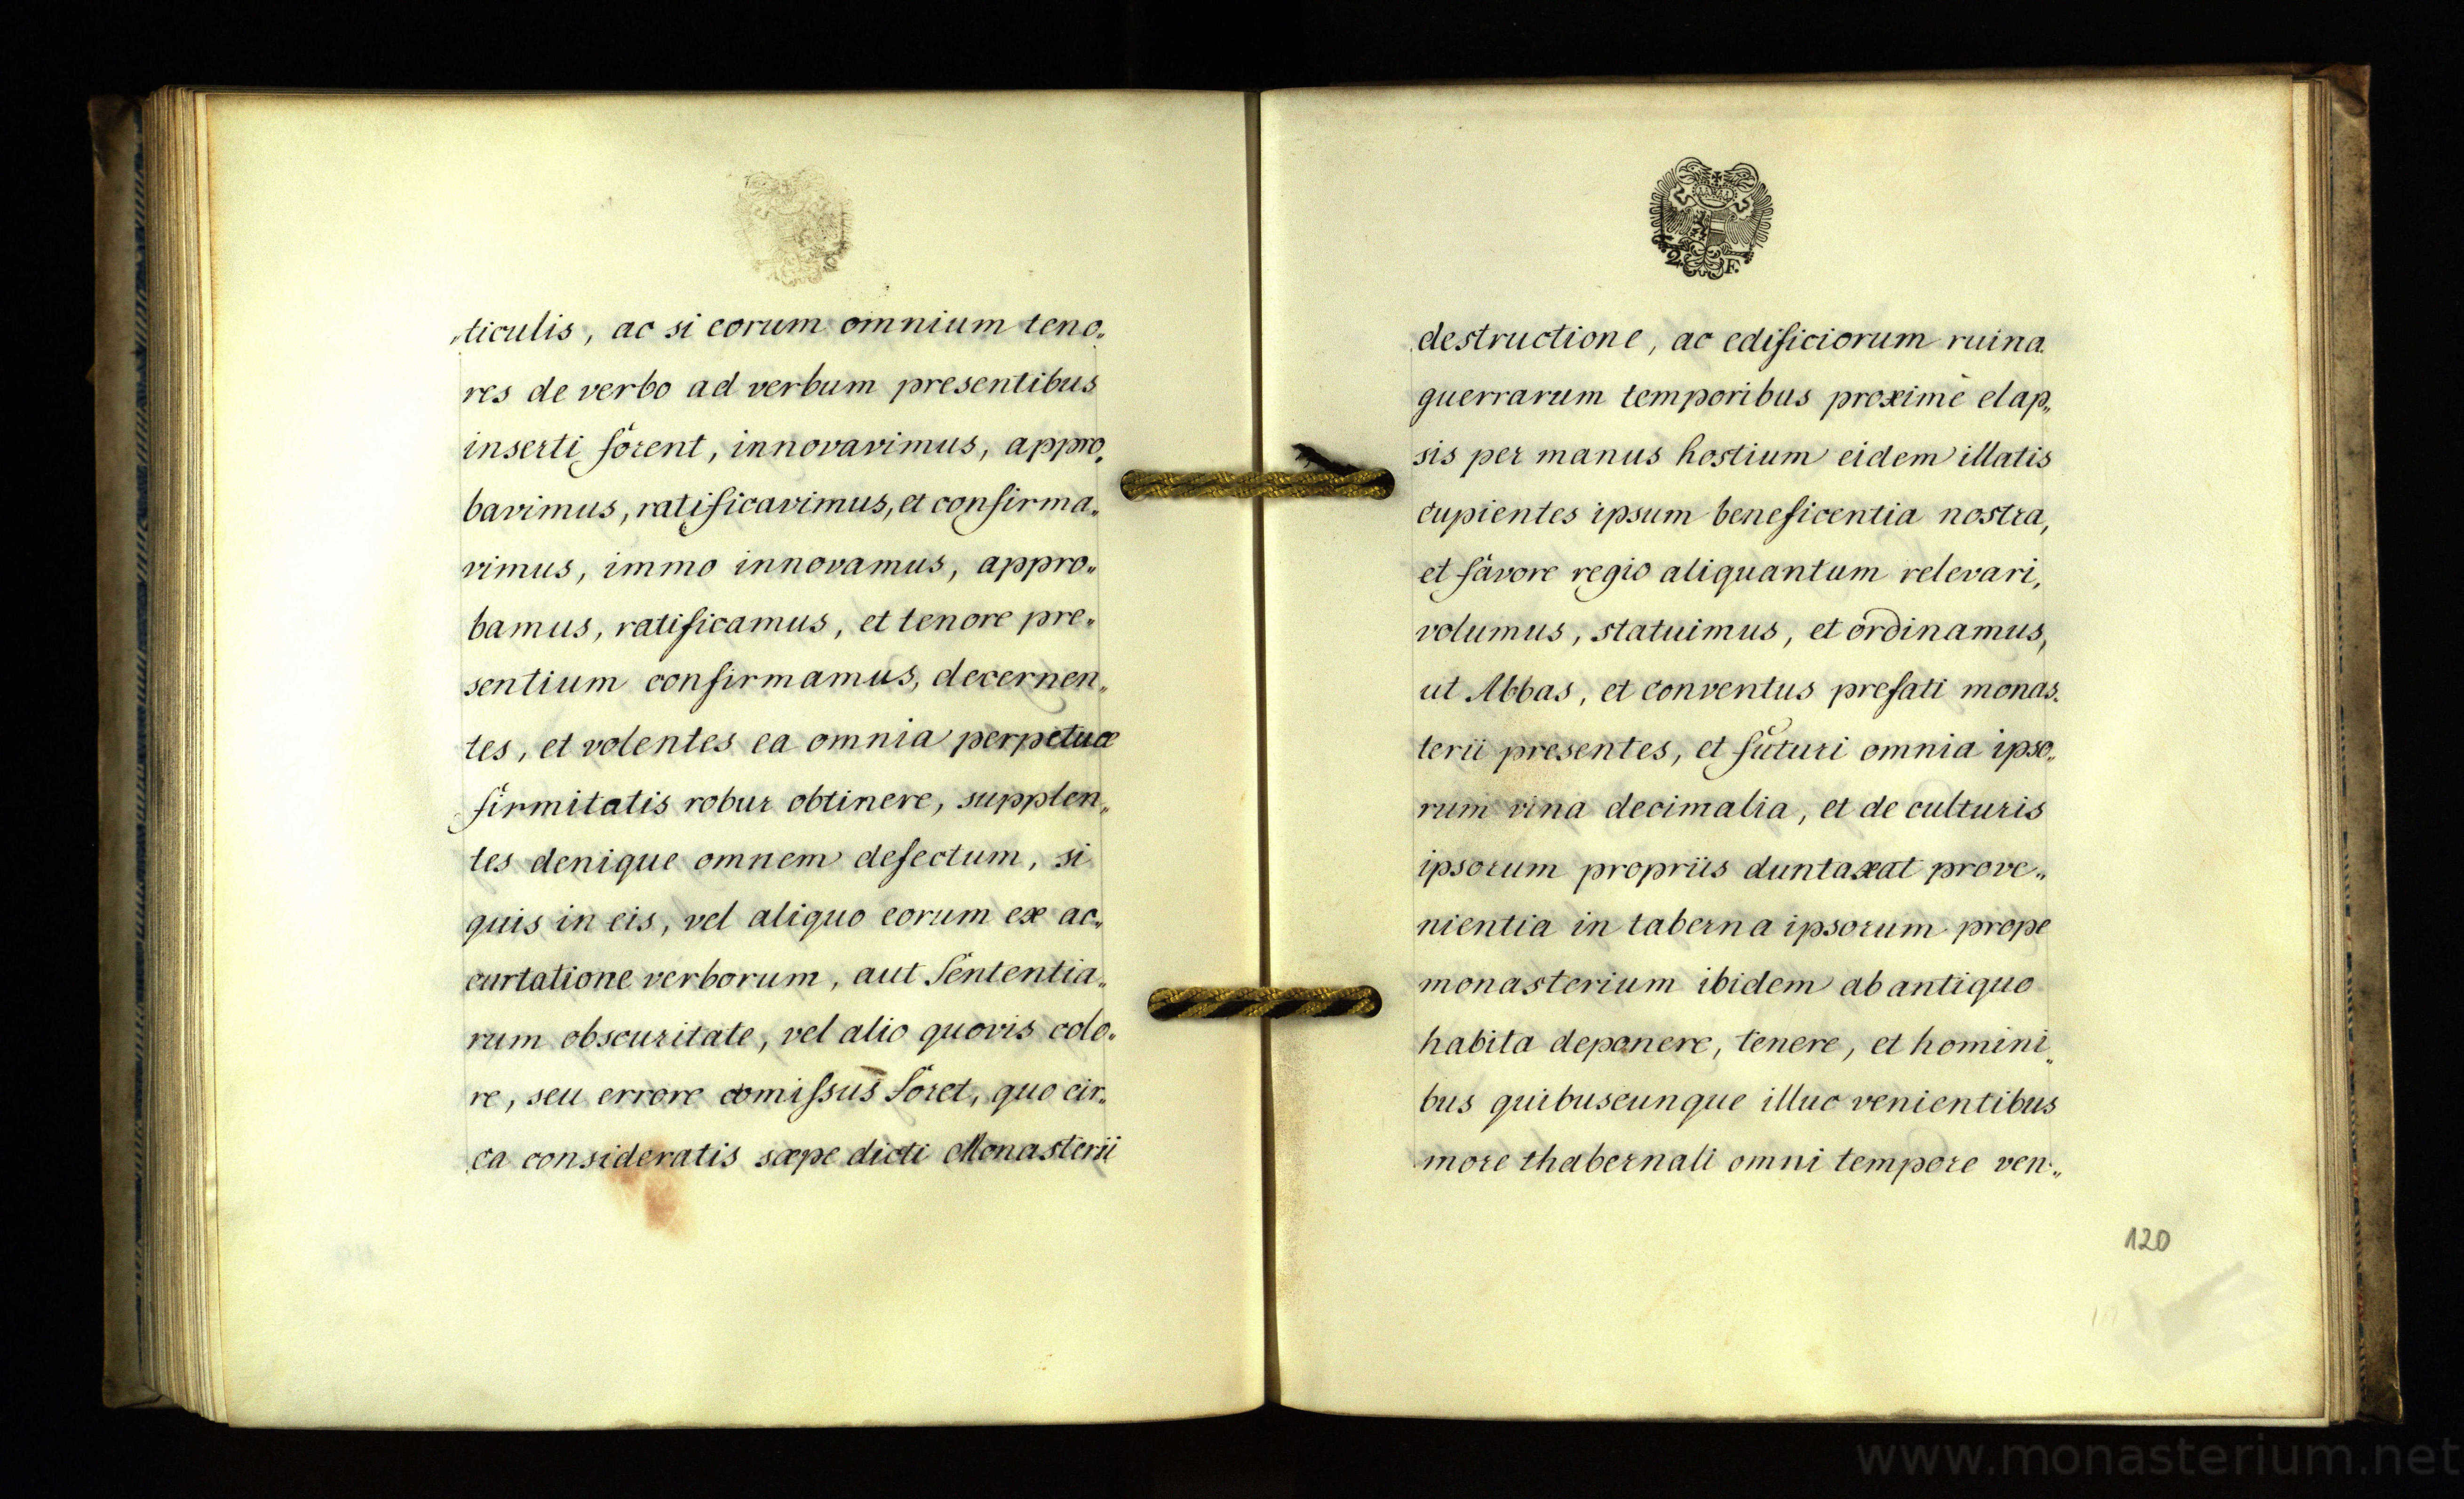 „ticulis, ac si eorum omnium teno„
res de verbo ad verbum presentibus
inserti forent, innovavimus, appro„
bavimus, ratificavimus, et confirma„
vimus, immo innovamus, appro„
bamus, ratificamus, et tenore pre„
sentium confirmamus, decernen„
tes, et volentes ea omnia perpetuæ
firmitatis robur obtinere, supplen„
tes denique omnem defectum, si
quis in eis, vel aliquo eorum ex ac„
curtatione verborum, aut Sententia„
rum obscuritate, vel alio quovis colo„
re, seu errore comiſsus foret, quo cir„
ca consideratis sæpe dicti Monasterii
2 F.
destructione, ac edificiorum ruina
guerrarum temporibus proximè elap„
sis per manus hostium eidem illatis
cupientes ipsum beneficentia nostra,
et favore regio aliquantum relevari,
volumus, statuimus, et ordinamus,
ut Abbas, et conventus prefati monas„
terii presentes, et futuri omnia ipso„
rum vina decimalia, et de culturis
ipsorum propriis duntaxat prove„
nientia in taberna ipsorum prope
monasterium ibidem ab antiquo
habita deponere, tenere, et homini„
bus quibuscunque illuc venientibus
more thabernali omni tempore ven„
120
www.monasterium.net